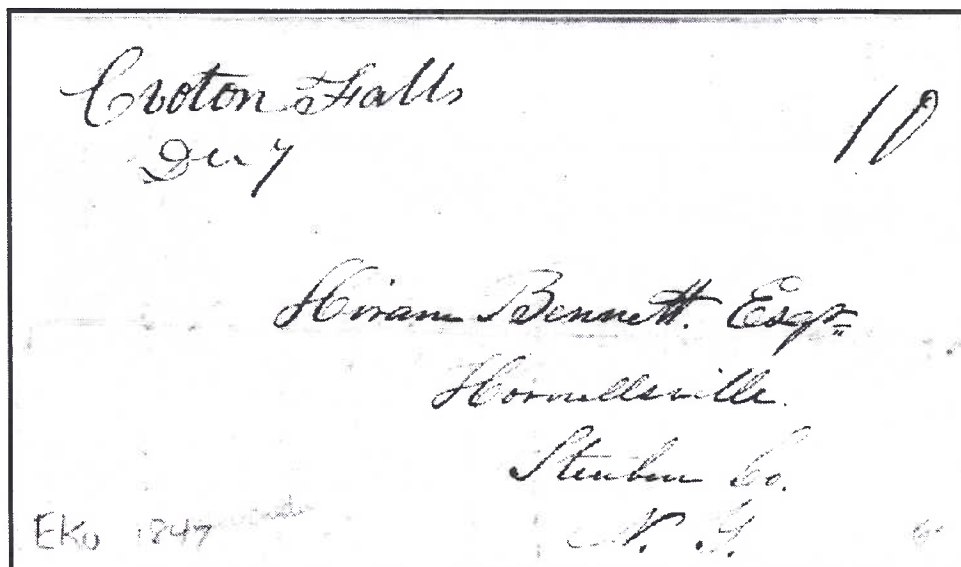 Croton Falls
Dec 7
10
Hiram Bennett. Esqr
Hornellsville.
Steuben Co.
N. Y.
EKU 1847